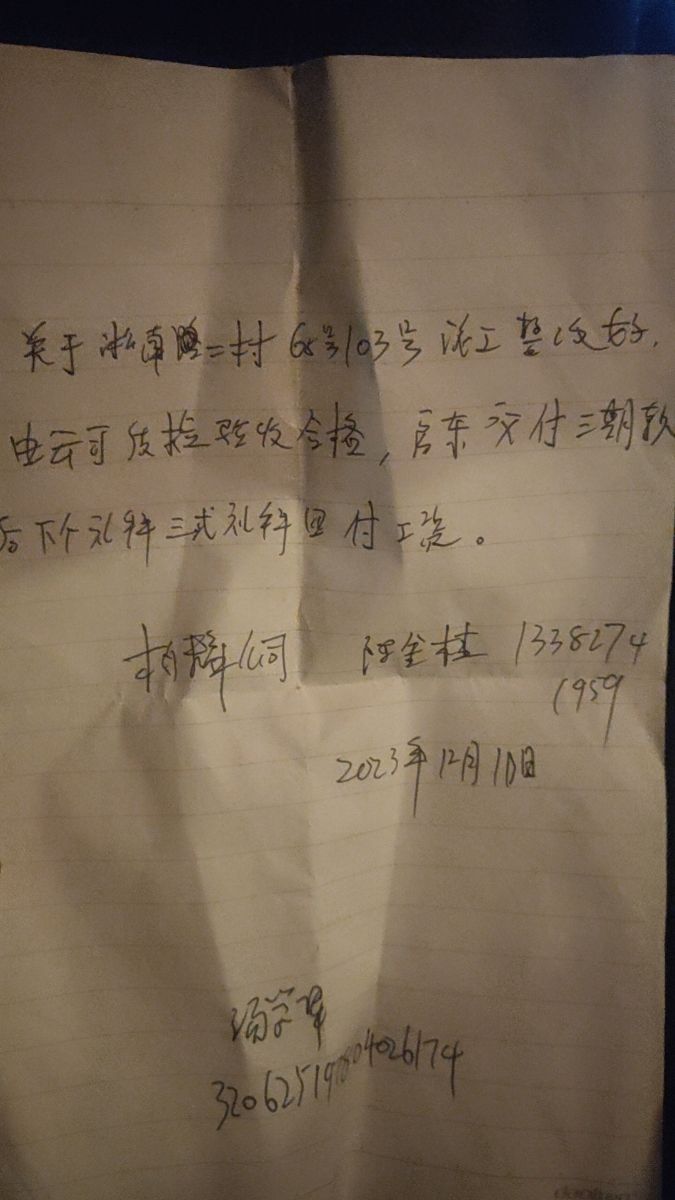 关于淞南路二村68号103号施工整改好,
由云可质检验收合格,房东交付三期款
后下个礼拜三或礼拜四付工资。
柏辉公司 陈金桂 1338274
1959
2023年12月10日
汤学